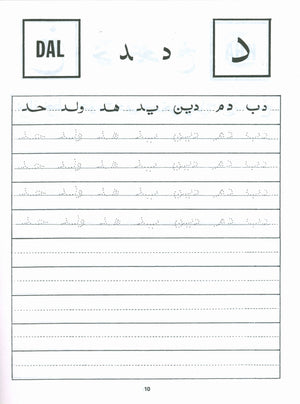 د د ـد DAL
دب دم دين يد هد ولد حد
دب دم دين يد هد ولد حد
دب دم دين يد هد ولد حد
دب دم دين يد هد ولد حد
دب دم دين يد هد ولد حد
10